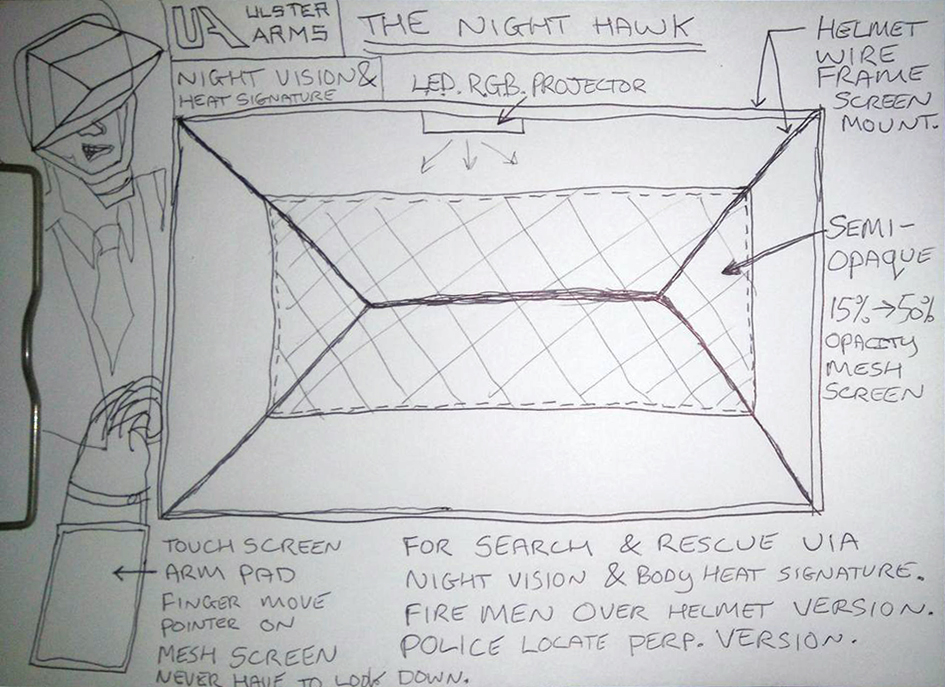 UA ULSTER ARMS
THE NIGHT HAWK
NIGHT VISION &
HEAT SIGNATURE
L.E.D. R.G.B. PROJECTOR
HELMET
WIRE
FRAME
SCREEN
MOUNT.
SEMI-
OPAQUE
15% → 50%
OPACITY
MESH
SCREEN
TOUCH SCREEN
ARM PAD
FINGER MOVE
POINTER ON
MESH SCREEN
NEVER HAVE TO LOOK DOWN.
FOR SEARCH & RESCUE VIA
NIGHT VISION & BODY HEAT SIGNATURE.
FIRE MEN OVER HELMET VERSION.
POLICE LOCATE PERP. VERSION.